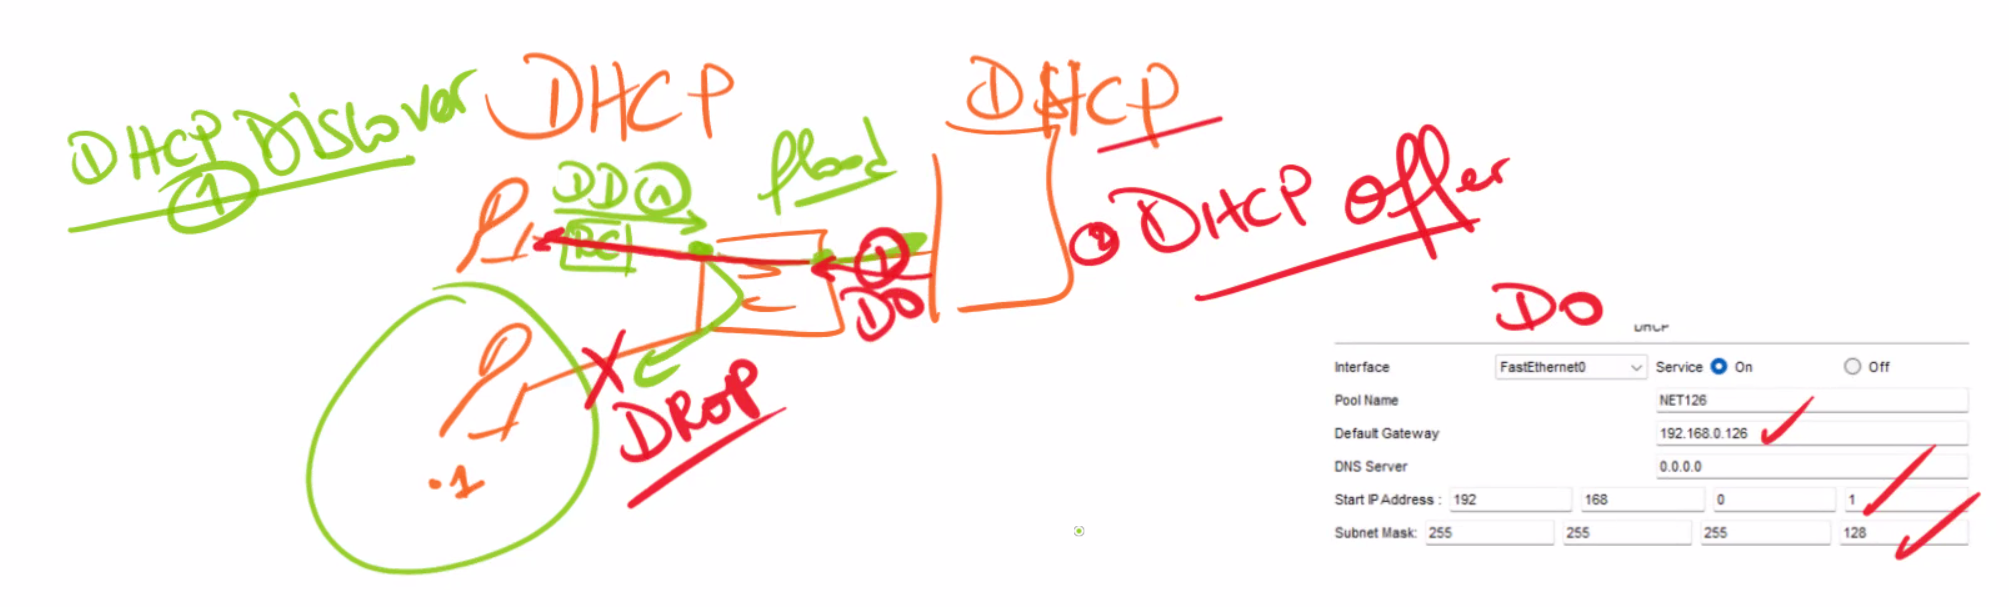 DHCP Discover
1
DHCP
DHCP
DD 1
BC
flood
1
DO
2 DHCP offer
DROP
.1
DO
DHCP
Interface FastEthernet0 Service On Off
Pool Name NET126
Default Gateway 192.168.0.126
DNS Server 0.0.0.0
Start IP Address : 192 168 0 1
Subnet Mask: 255 255 255 128